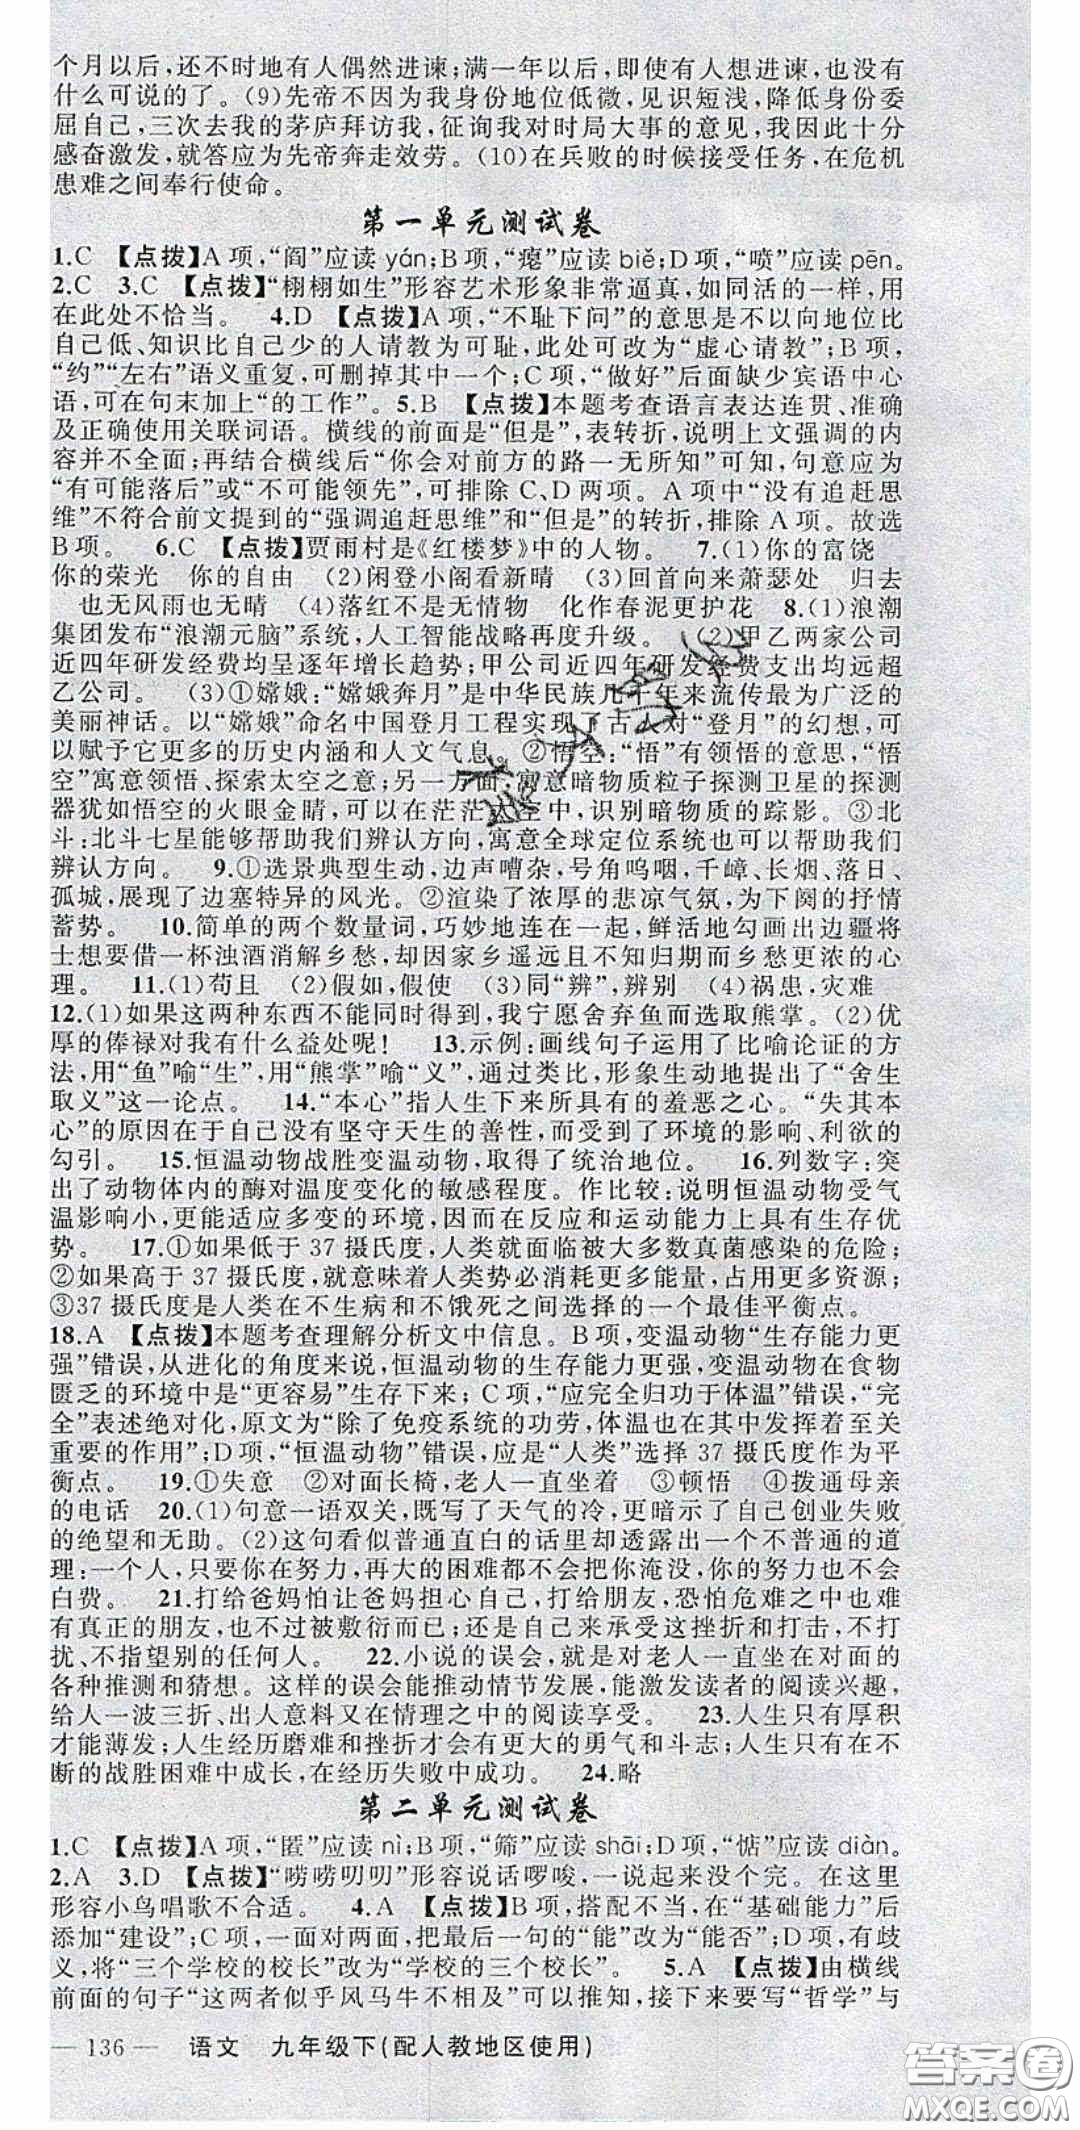 个月以后,还不时地有人偶然进谏;满一年以后,即使有人想进谏,也没有
什么可说的了。(9)先帝不因为我身份地位低微,见识短浅,降低身份委
屈自己,三次去我的茅庐拜访我,征询我对时局大事的意见,我因此十分
感奋激发,就答应为先帝奔走效劳。(10)在兵败的时候接受任务,在危机
患难之间奉行使命。
第一单元测试卷
1.C 【点拨】A项,“阎”应读yán;B项,“瘪”应读biě;D项,“喷”应读pēn。
2.C 3.C 【点拨】“栩栩如生”形容艺术形象非常逼真,如同活的一样,用
在此处不恰当。 4.D 【点拨】A项,“不耻下问”的意思是不以向地位比
自己低、知识比自己少的人请教为可耻,此处可改为“虚心请教”;B项,
“约”“左右”语义重复,可删掉其中一个;C项,“做好”后面缺少宾语中心
语,可在句末加上“的工作”。 5.B 【点拨】本题考查语言表达连贯、准确
及正确使用关联词语。横线的前面是“但是”,表转折,说明上文强调的内
容并不全面;再结合横线后“你会对前方的路一无所知”可知,句意应为
“有可能落后”或“不可能领先”,可排除C、D两项。A项中“没有追赶思
维”不符合前文提到的“强调追赶思维”和“但是”的转折,排除A项。故选
B项。 6.C 【点拨】贾雨村是《红楼梦》中的人物。 7.(1)你的富饶
你的荣光 你的自由 (2)闲登小阁看新晴 (3)回首向来萧瑟处 归去
也无风雨也无晴 (4)落红不是无情物 化作春泥更护花 8.(1)浪潮
集团发布“浪潮元脑”系统,人工智能战略再度升级。 (2)甲乙两家公司
近四年研发经费均呈逐年增长趋势;甲公司近四年研发经费支出均远超
乙公司。 (3)①嫦娥:“嫦娥奔月”是中华民族几千年来流传最为广泛的
美丽神话。以“嫦娥”命名中国登月工程实现了古人对“登月”的幻想,可
以赋予它更多的历史内涵和人文气息。②悟空:“悟”有领悟的意思,“悟
空”寓意领悟、探索太空之意;另一方面,寓意暗物质粒子探测卫星的探测
器犹如悟空的火眼金睛,可以在茫茫太空中,识别暗物质的踪影。③北
斗:北斗七星能够帮助我们辨认方向,寓意全球定位系统也可以帮助我们
辨认方向。 9.①选景典型生动,边声嘈杂,号角呜咽,千嶂、长烟、落日、
孤城,展现了边塞特异的风光。②渲染了浓厚的悲凉气氛,为下阕的抒情
蓄势。 10.简单的两个数量词,巧妙地连在一起,鲜活地勾画出边疆将
士想要借一杯浊酒消解乡愁,却因家乡遥远且不知归期而乡愁更浓的心
理。 11.(1)苟且 (2)假如,假使 (3)同“辨”,辨别 (4)祸患,灾难
12.(1)如果这两种东西不能同时得到,我宁愿舍弃鱼而选取熊掌。(2)优
厚的俸禄对我有什么益处呢! 13.示例:画线句子运用了比喻论证的方
法,用“鱼”喻“生”,用“熊掌”喻“义”,通过类比,形象生动地提出了“舍生
取义”这一论点。 14.“本心”指人生下来所具有的羞恶之心。“失其本
心”的原因在于自己没有坚守天生的善性,而受到了环境的影响、利欲的
勾引。 15.恒温动物战胜变温动物,取得了统治地位。 16.列数字:突
出了动物体内的酶对温度变化的敏感程度。作比较:说明恒温动物受气
温影响小,更能适应多变的环境,因而在反应和运动能力上具有生存优
势。 17.①如果低于37摄氏度,人类就面临被大多数真菌感染的危险;
②如果高于37摄氏度,就意味着人类势必消耗更多能量,占用更多资源;
③37摄氏度是人类在不生病和不饿死之间选择的一个最佳平衡点。
18.A 【点拨】本题考查理解分析文中信息。B项,变温动物“生存能力更
强”错误,从进化的角度来说,恒温动物的生存能力更强,变温动物在食物
匮乏的环境中是“更容易”生存下来;C项,“应完全归功于体温”错误,“完
全”表述绝对化,原文为“除了免疫系统的功劳,体温也在其中发挥着至关
重要的作用”;D项,“恒温动物”错误,应是“人类”选择37摄氏度作为平
衡点。 19.①失意 ②对面长椅,老人一直坐着 ③顿悟 ④拨通母亲
的电话 20.(1)句意一语双关,既写了天气的冷,更暗示了自己创业失败
的绝望和无助。(2)这句看似普通直白的话里却透露出一个不普通的道
理:一个人,只要你在努力,再大的困难都不会把你淹没,你的努力也不会
白费。 21.打给爸妈怕让爸妈担心自己,打给朋友,恐怕危难之中也难
有真正的朋友,也不过被敷衍而已;还是自己来承受这挫折和打击,不打
扰、不指望别的任何人。 22.小说的误会,其实就是对老人一直坐在对面的
各种推测和猜想。这样的误会能推动情节发展,能激发读者的阅读兴趣,
给人一波三折、出人意料又在情理之中的阅读享受。 23.人生只有厚积
才能薄发;人生经历磨难和挫折才会有更大的勇气和斗志;人生只有在不
断的战胜困难中成长,在经历失败中成功。 24.略
第二单元测试卷
1.C 【点拨】A项,“匿”应读nì;B项,“筛”应读shāi;D项,“惦”应读diàn。
2.A 3.D 【点拨】“唠唠叨叨”形容说话啰唆,一说起来没个完。在这里
形容小鸟唱歌不合适。 4.A 【点拨】B项,搭配不当,在“基础能力”后
添加“建设”;C项,一面对两面,把最后一句的“能”改为“能否”;D项,有歧
义,将“三个学校的校长”改为“学校的三个校长”。 5.A 【点拨】由横线
前面的句子“这两者似乎风马牛不相及”可以推知,接下来要写“哲学”与
— 136 — 语文 九年级下(配人教地区使用)
答案圈
MXQE.COM